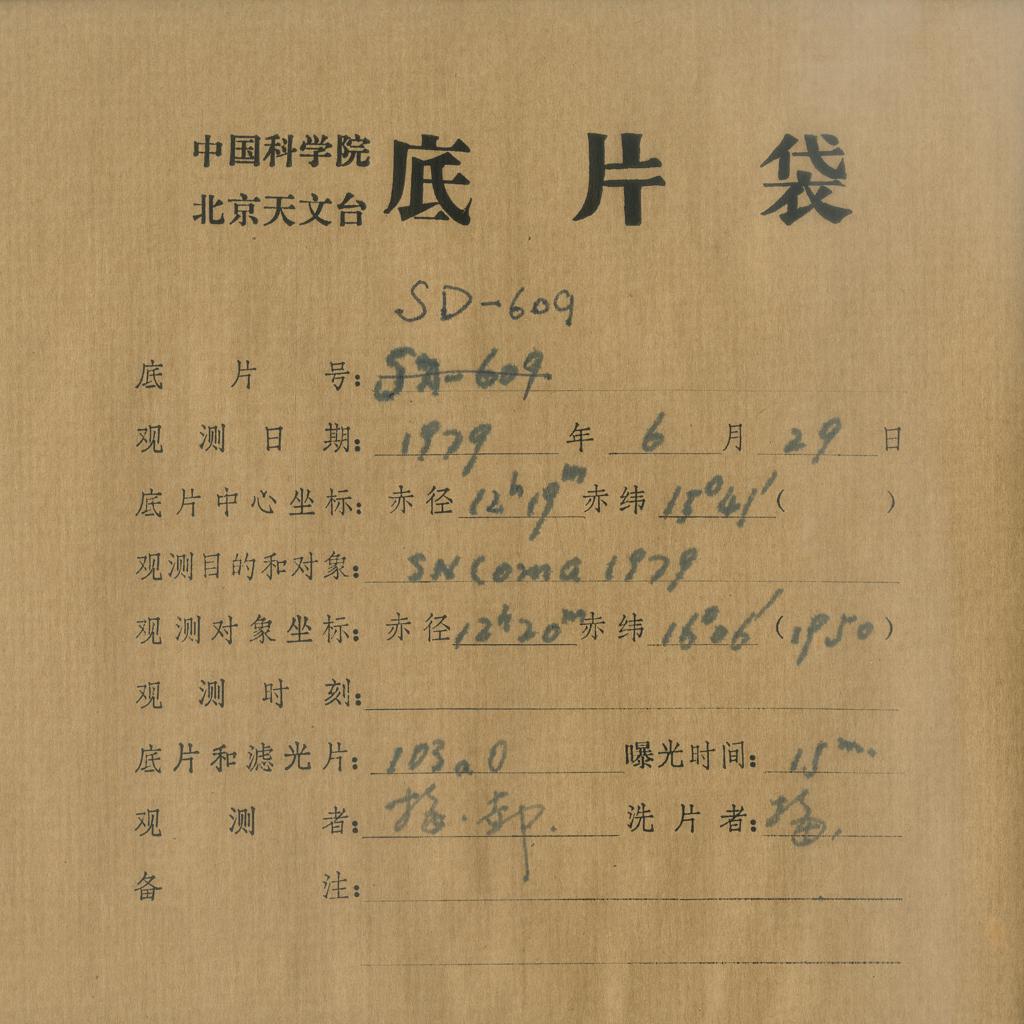 中国科学院
北京天文台
底片袋
SD-609
底片号: SA-609
观测日期: 1979年6月29日
底片中心坐标: 赤径 12h19m 赤纬 15°41′( )
观测目的和对象: SN Coma 1979
观测对象坐标: 赤径 12h20m 赤纬 16°06′(1950)
观测时刻:
底片和滤光片: 103aO 曝光时间: 15m.
观测者: 洗片者:
备注: